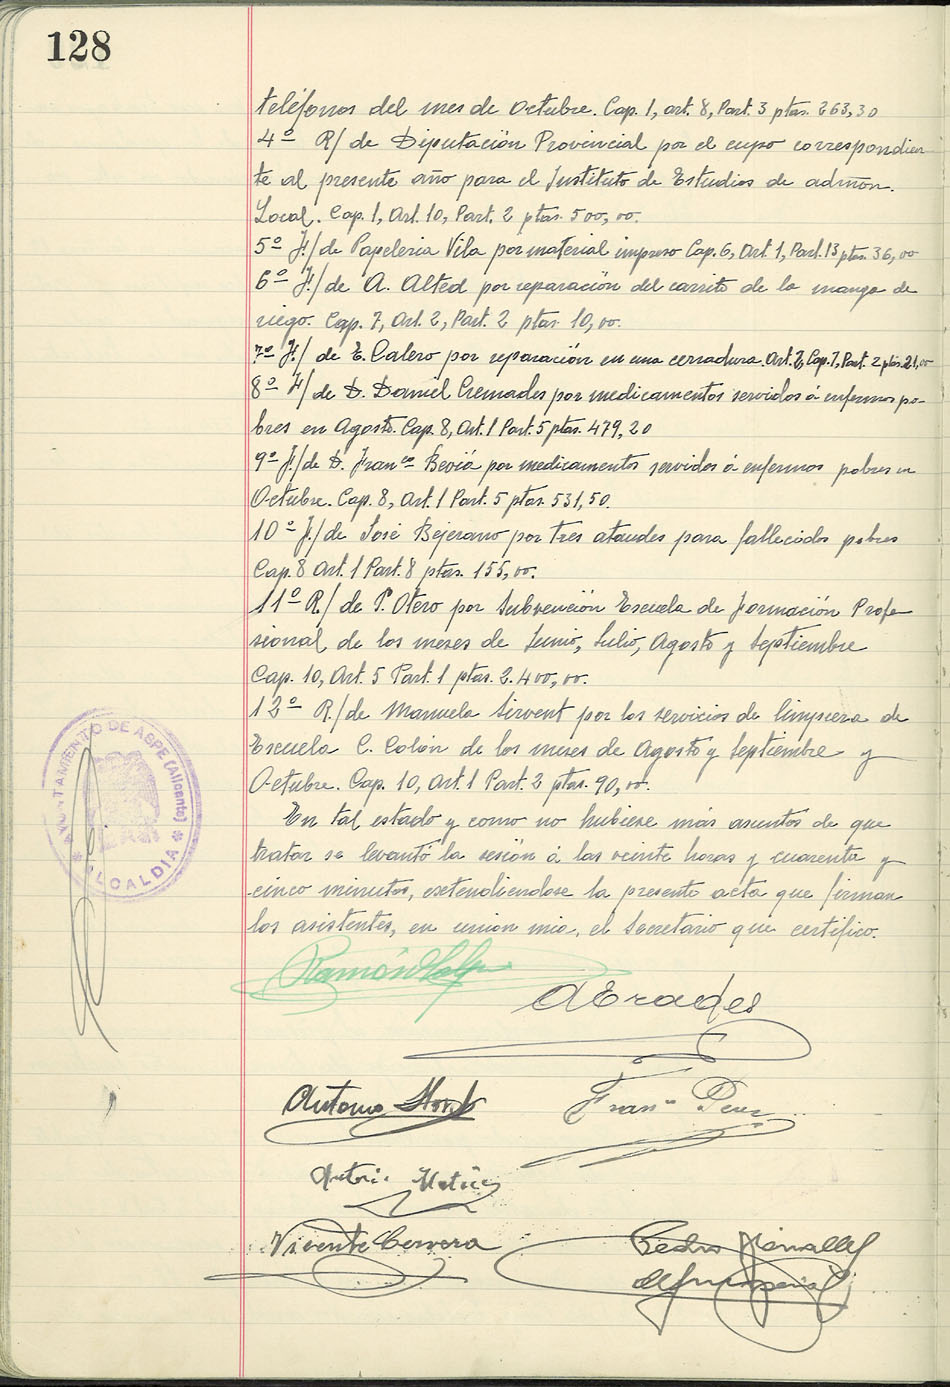 128
teléfonos del mes de Octubre. Cap. 1, art. 8, Part. 3 ptas. 263,30
4º R/ de Diputación Provincial por el cupo correspondien-
te al presente año para el Instituto de Estudios de admón.
Local. Cap. 1, Art. 10, Part. 2 ptas. 500,00.
5º F/ de Papeleria Vila por material impreso Cap. 6, Art. 1, Part. 13 ptas. 36,00
6º F/ de A. Alted por reparación del carrito de la manga de
riego. Cap. 7, Art. 2, Part. 2 ptas 10,00.
7º F/ de E. Calero por reparación en una cerradura. Art. 2, Cap. 7, Part. 2 ptas. 21,00
8º F/ de D. Daniel Cremades por medicamentos servidos á enfermos po-
bres en Agosto. Cap. 8, Art. 1 Part. 5 ptas. 479,20
9º F/ de D. Franco Beviá por medicamentos servidos á enfermos pobres en
Octubre. Cap. 8, Art. 1 Part. 5 ptas. 531,50.
10º F/ de José Bejerano por tres ataudes para fallecidos pobres
Cap. 8 Art. 1 Part. 8 ptas. 155,00.
11º R/ de P. Otero por Subvención Escuela de Formación Profe-
sional de los meses de Junio, Julio, Agosto y Septiembre
Cap. 10, Art. 5 Part. 1 ptas. 2.400,00.
12º R/ de Manuela Sirvent por los servicios de limpieza de
Escuela C. Colón de los meses de Agosto y Septiembre y
Octubre. Cap. 10, Art. 1 Part. 2 ptas. 90,00.
En tal estado y como no hubiese más asuntos de que
tratar se levantó la sesión á las veinte horas y cuarenta y
cinco minutos, extendiendose la presente acta que firman
los asistentes, en unión mia, el Secretario que certifico.
AYUNTAMIENTO DE ASPE (Alicante)
* ALCALDIA *
Ramón
A Erades
Antonio
Franco Perez
Antonio
Vicente Cervera
Pedro